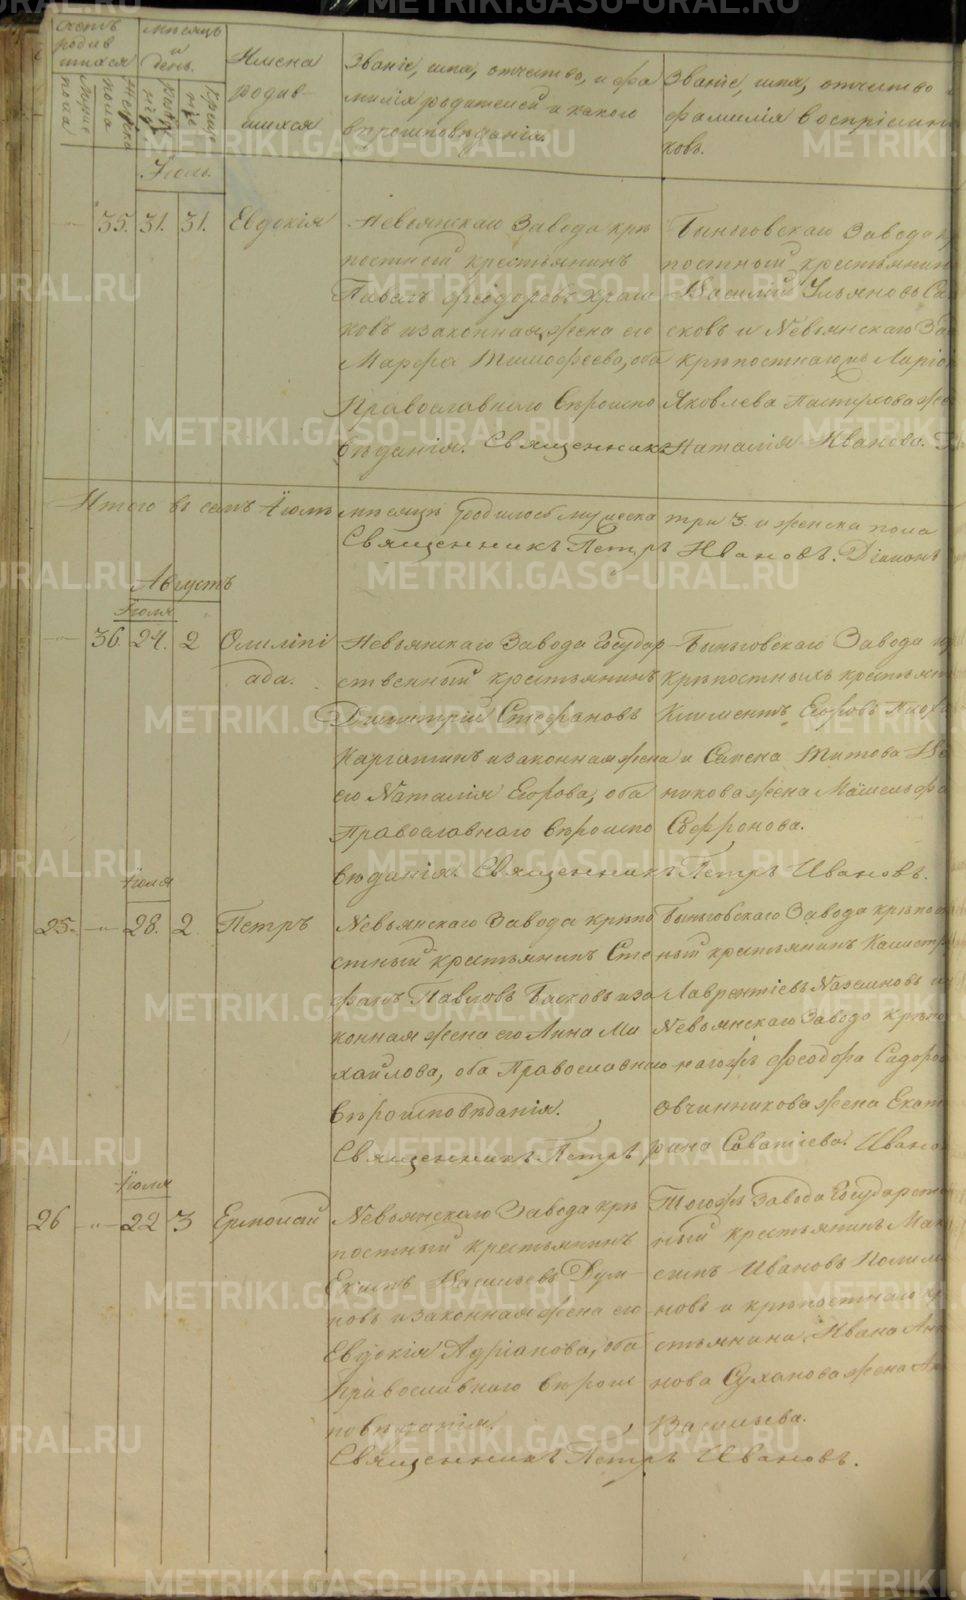 METRIKI.GASO-URAL.RU
Счетъ родив шихся
мѣсяцъ и день.
Имена родив-шихся
Званіе, имя, отчество, и фа
милія родителей и какого
вѣроисповѣданія.
Званіе, имя, отчество
фамилія воспріемни
ковъ.
Іюль.
35. 31. 31. Евдокія
Невьянскаго Завода крѣ
постный крестьянинъ
Павелъ Феодоровъ Храм
ковъ и законная жена его
Марфа Тимофеева, оба
Православнаго вѣроиспо
вѣданія. Священникъ
Быньговскаго Завода к
постный крестьянин
Василій Ульяновъ Са
сковъ и Невьянскаго За
крѣпостнаго Ларіо
Яковлева Пастухова же
Наталія Иванова.
Итого въ семъ Іюлѣ мѣсяцѣ родилось мужеска три 3. и женска пола
Священникъ Петръ Ивановъ. Діаконъ
Августъ
Іюля
36. 24. 2 Олимпі
ада.
Невьянскаго Завода Государ
ственный крестьянинъ
Димитрій Стефановъ
Каргашинъ и законная жена
его Наталія Егорова, оба
Православнаго вѣроиспо
вѣданія. Священникъ Петръ Ивановъ.
Быньговскаго Завода
крѣпостныхъ крестьян
Климентъ Егоровъ
и Семена Титова
никова жена
Софронова.
Іюля
25. 28. 2. Петръ
Невьянскаго Завода крѣпо
стный крестьянинъ Сте
фанъ Павловъ Басковъ и за
конная жена его Анна Ми
хайлова, оба Православнаго
вѣроисповѣданія.
Священникъ Петръ
Быньговскаго Завода крѣпос
ный крестьянинъ Калистр
Лаврентіевъ Назимовъ и
Невьянскаго Завода крѣпо
Феодора Сидоро
Овчинникова жена Екат
рина Саватіева. Ивано
Іюля
26 22 3 Ермолай
Невьянскаго Завода крѣ
постный крестьянинъ
Екимъ Васильевъ Дум-
новъ и законная жена его
Евдокія Адріанова, оба
Православнаго вѣроис
повѣданія.
Тогожъ Завода Государств
ный крестьянинъ Мак
симъ Ивановъ
новъ и крѣпостнаго кр
стьянина Ивана Ан
нова Суханова жена
Васильева.
Священникъ Петръ Ивановъ.